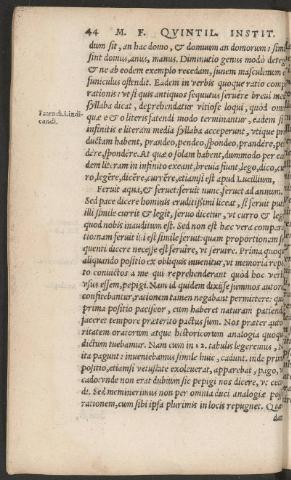 44 M. F. QVINTIL. INSTIT.
dum sit, an hac domo, & domuum an domorum: simi
sint domus, anus, manus. Diminutio genus modo deteg
& ne ab eodem exemplo recedam, funem masculinum
funiculus ostendit. Eadem in verbis quoque ratio comp
rationis: vt si quis antiquos sequutus feruere breui me
syllaba dicat, deprehendatur vitiose loqui, quòd omn
quæ e & o literis fatendi modo terminantur, eadem si
Fatendi.i.indi-
candi.
infinitis e literam media syllaba acceperunt, vtique pr
ductam habent, prandeo, pendeo, spondeo, prandére, pe
dére, spondére. At quæ o solam habent, dummodo per ea
dem literam in infinito exeant, breuia fiunt, lego, dico, cur
ro, legere, dicere, currere, etiamsi est apud Lucillium,
Feruit aqua, & feruet: feruit nunc, feruet ad annum.
Sed pace dicere hominis eruditissimi liceat, si feruit put
illi simile currit & legit, feruo dicetur, vt curro & leg
quod nobis inauditum est. Sed non est hæc vera compar
tionam feruit
est simile seruit: quam proportionam
quenti dicere necesse est feruire, vt seruire. Prima quoq
aliquando positio ex obliquis inuenitur, vt memoria repe
to conuictos a me qui reprehenderant quòd hoc verb
vsus essem, pepigi. Nam id quidem dixisse summos autor
confitebantur, rationem tamen negabant permittere: qu
prima positio paciscor, cum haberet naturam patiendi
faceret tempore præterito pactus sum. Nos præter auto
ritatem oratorum atque historicorum analogia quoq
dictum tuebamur. Nam cum in 12. tabulis legeremus,
ita pagunt: inueniebamus simile huic, cadunt. inde prim
positio, etiamsi vetustate exoleuerat, apparebat, pago,
cado: vnde non erat dubium sic pepigi nos dicere, vt ceci
di. Sed meminerimus non per omnia duci analogiæ pos
rationem, cum sibi ipsa plurimis in locis repugnet. Quæ